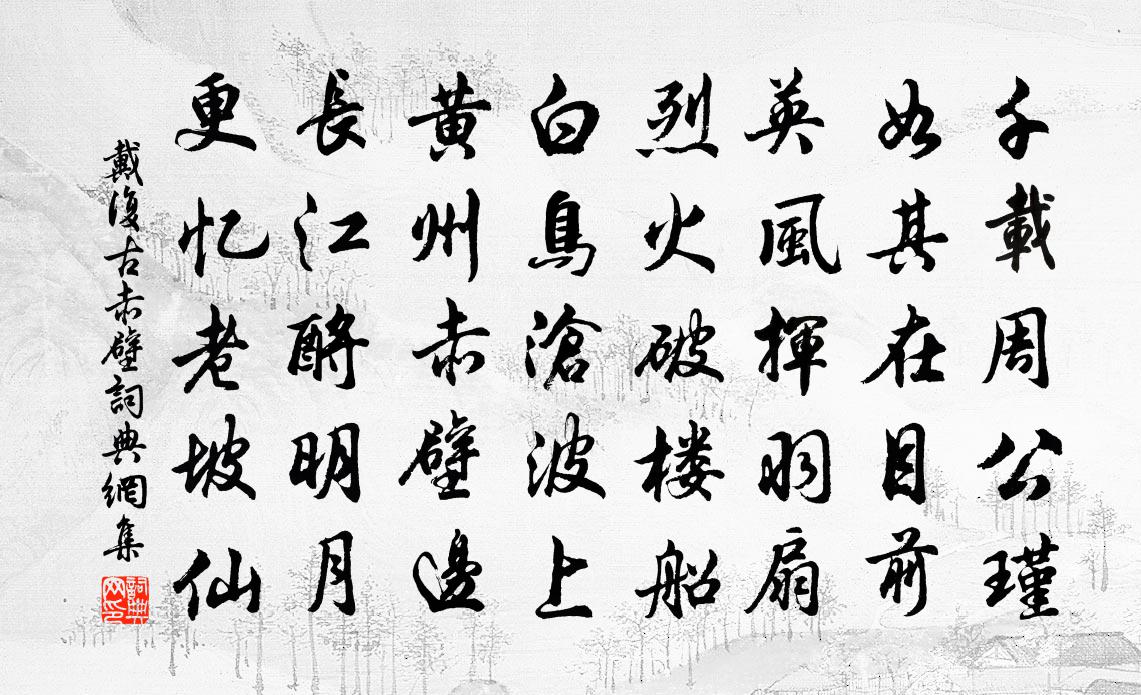 千載周公瑾
如其在目前
英風揮羽扇
烈火破楼船
白鳥滄波上
黄州赤壁邊
長江酹明月
更忆老坡仙
戴復古赤壁詞典網集
詞典网印